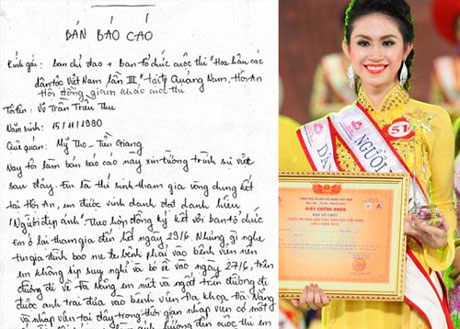 BẢN BÁO CÁO
Kính gửi: ban chỉ đạo + ban tổ chức cuộc thi "Hoa hậu các
dân tộc Việt Nam lần III" tại Quảng Nam, Hội An
Hội đồng giám khảo cuộc thi
Tô tên: Võ Trần Triều Thu
Năm sinh: 15/11/1990
Quê quán: Mỹ Tho - Tiền Giang
Nay tôi làm bản báo cáo này xin tường trình sự việc
sau đây. Em là thí sinh tham gia vòng chung kết
tại Hội An, em được vinh danh đạt danh hiệu
"Người đẹp ảnh". Theo hợp đồng ký kết với ban tổ chức
em ở lại tham gia đến hết ngày 29/6. Nhưng vì nghe
tin gia đình báo mẹ bệnh phải vào bệnh viện nên
em không kịp suy nghĩ và bỏ về vào ngày 27/6, trên
đường đi về Đà Nẵng em mệt và ngất trên đường đi
được anh trai đưa vào bệnh viện Đa Khoa Đà Nẵng
và nhập viện tại đây trong thời gian nhập viện có một
hưởng đến cuộc thi em
NGƯỜI
51
GIẤY CHỨNG NHẬN
BAN TỔ CHỨC